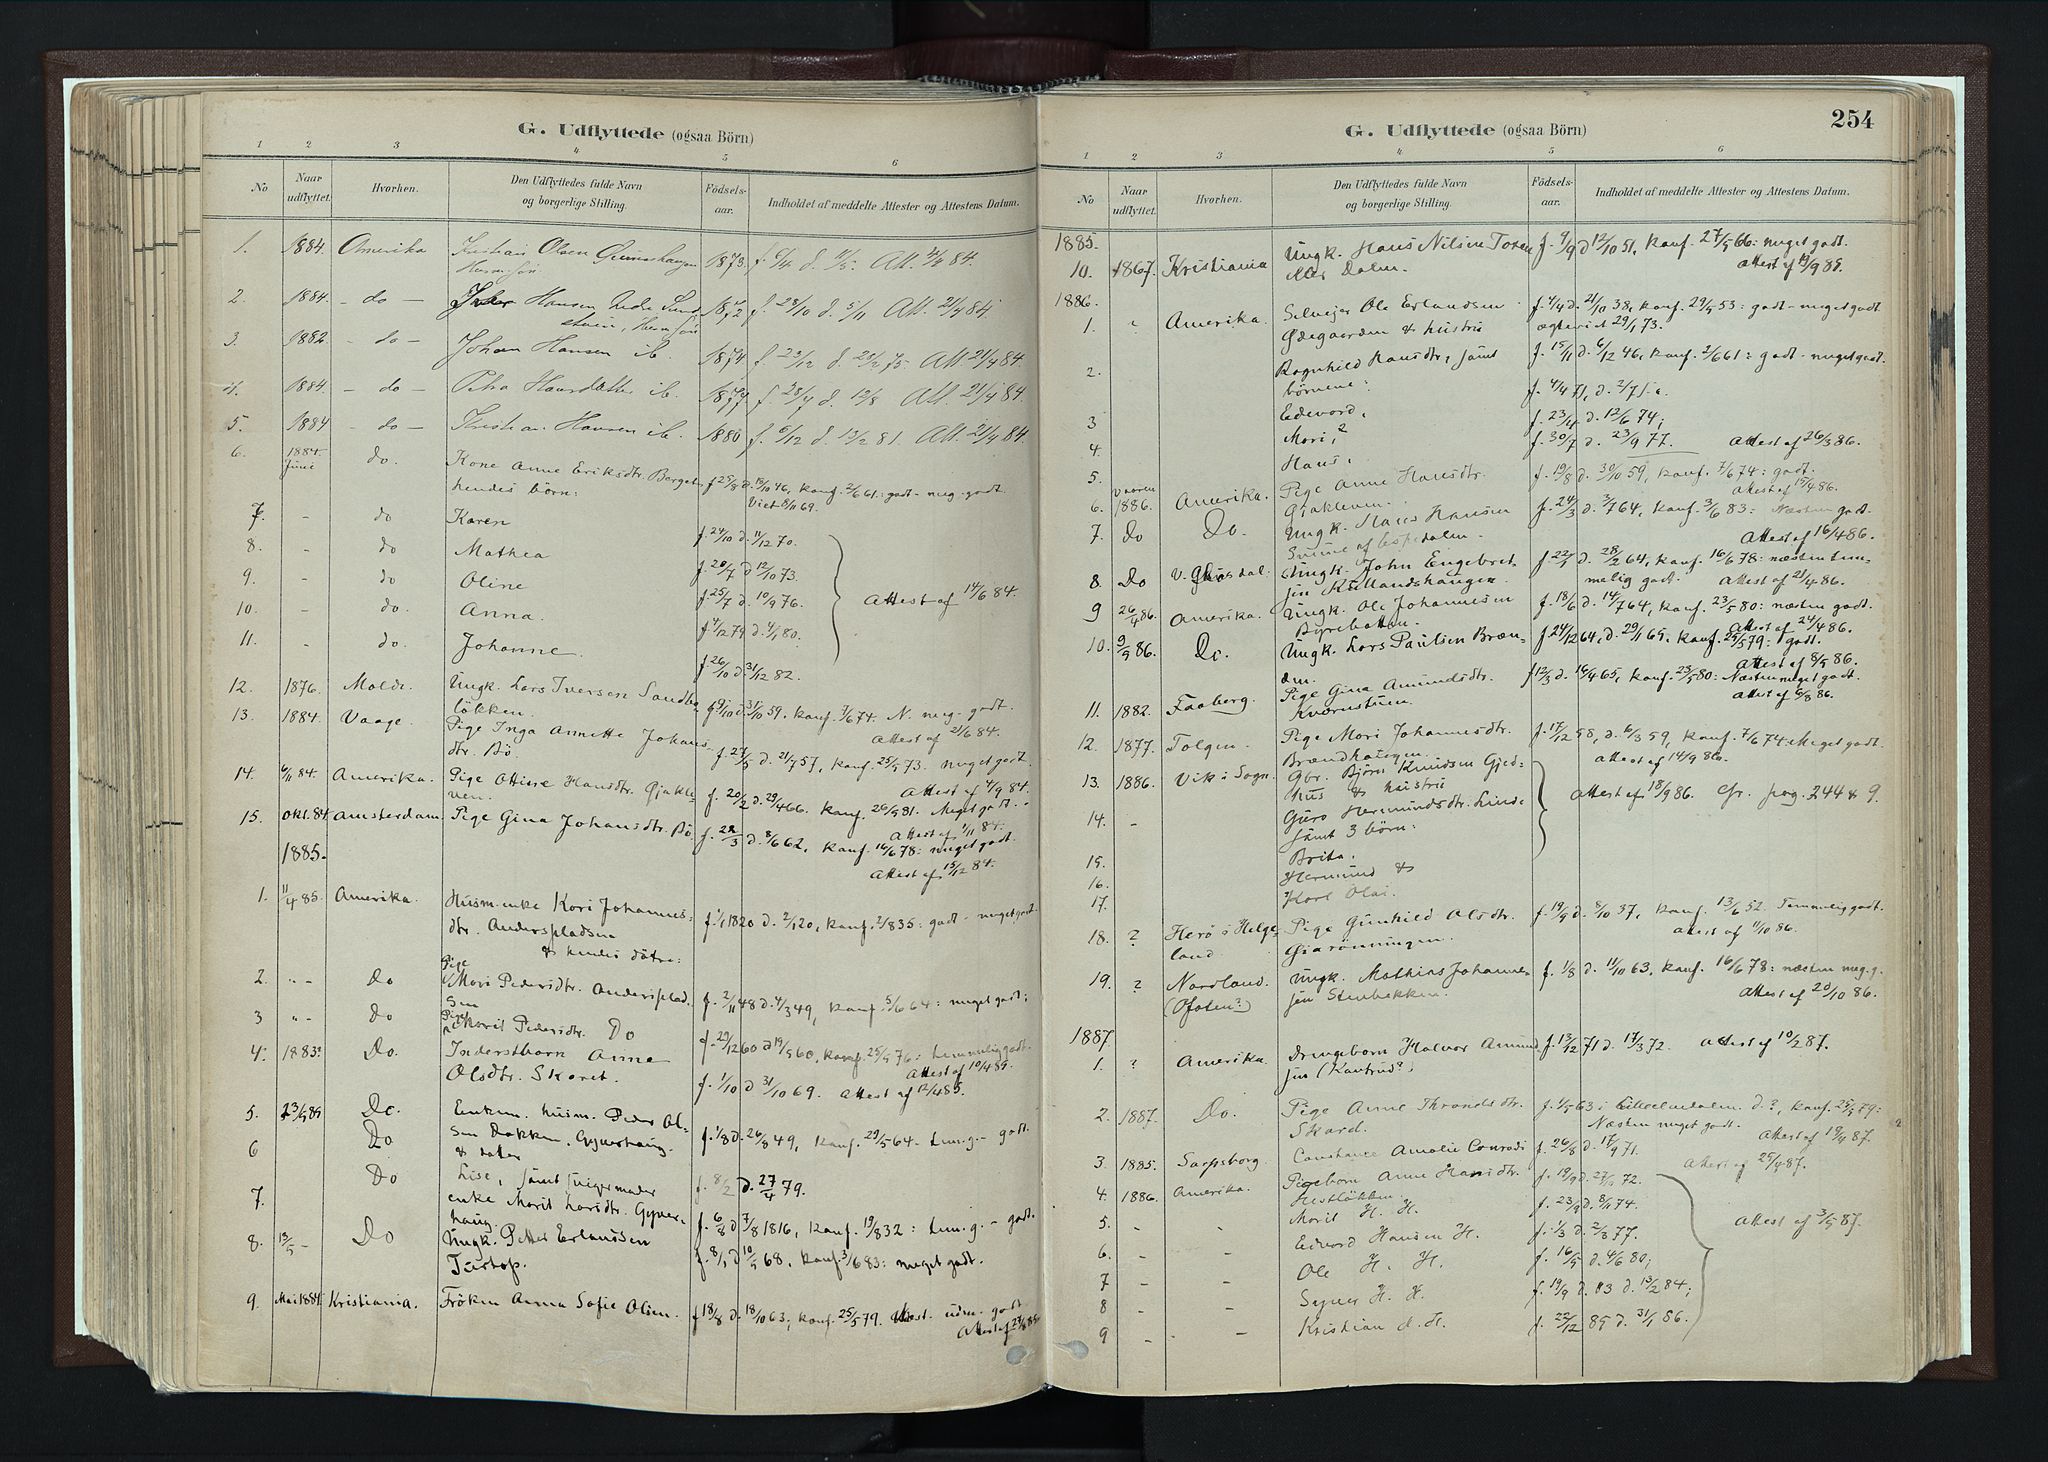 G. Udflyttede (ogsaa Börn)
1 2 3 4 5 6
No Naar udflyttet. Hvorhen. Den Udflyttedes fulde Navn og borgerlige Stilling. Födsels-aar. Indholdet af meddelte Attester og Attestens Datum.
1. 1884. Amerika Olsen 1873. Att. 84.
2. 1884. - do - Hansen 28/10 d. 5/11 Att. 21/4 84.
3. 1882 - do - Johan Hansen ib. 1874 f. 23/12 d. 28/2 75. Att. 21/4 84.
4. 1884. - do - Petra Hansdatter ib. 1877 f. 28/7 d. 12/8 Att. 21/4 84.
5. 1884 - do - Kristian Hansen ib. 1880 f. 6/12 d. 13/2 81. Att. 21/4 84.
6. 1884. Juni do. Kone Anne Eriksdtr. f. 25/8 d. 18/10 46, konf. 2/6 61: godt - meg. godt.
hendes börn: Viet 8/11 69.
7. - do Karen f. 24/10 d. 11/12 70.
8. - do Mathea f. 20/7 d. 12/10 73.
9. - do Oline f. 25/7 d. 10/9 76. Attest af 14/6 84.
10. - do. Anna. f. 4/12 79 d. 4/1 80.
11. - do. Johanne. f. 26/10 d. 31/12 82.
12. 1876. Molde. Ungk. Lars Iversen Sandbo-
lökken. f. 9/10 d. 31/10 59, konf. 7/6 74. N. meg. godt.
Attest af 21/6 84.
13. 1884. Vaage. Pige Inga Annette Johans-
dtr. Bö f. 27/5 d. 21/7 57, konf. 25/5 73. meget godt.
Attest af 4/9 84.
14. 6/11 84. Amerika. Pige Ottine Hansdtr. Gjakle-
ven. f. 20/2 d. 29/4 66. konf. 26/5 81. Meget godt.
Attest af 1/11 84.
15. Okt. 84. Amsterdam. Pige Gina Johansdtr. Bö f. 22/3 d. 8/6 62, konf. 16/6 78: meget godt.
Attest af 15/12 84.
1885.
1. 11/4 85. Amerika. Husm.enke Kari Johannes-
dtr. Anderspladsen f. 1/1 1820 d. 2/1 20, konf. 2/8 35: godt - meget godt.
& hendes dötre:
2. " - Do Pige Mari Pedersdtr. Anderspladsen f. 2/11 48 d. 4/3 49, konf. 5/6 64: meget godt;
3 " - Do Pige Marit Pedersdtr. Do f. 29/12 60 d. 19/5 60, konf. 25/5 76: temmelig godt.
Attest af 10/4 85.
4. 1883? Do. Inderstbarn Anne
Olsdtr. Skaret. f. 1/10 d. 31/10 69. Attest af 12/4 85.
5. 23/4 85 Do. Enkem. husm. Peder Ol-
sen Bakken, Gyverhaug. f. 1/8 d. 26/8 49, konf. 29/5 64. tem. g. - godt.
6 Do & datter
Lise, samt svigermoder f. 8/2 d. 27/4 79.
7. Do enke Marit Larsdtr. Gyver-
haug. f. 6/8 d. 7/8 1816, konf. 19/8 32: tem. g. - godt.
8. 13/5 - Do Ungk. Petter Erlandsen
f. 8/1 d. 10/5 68, konf. 3/6 83: meget godt.
9. Mai 1884. Kristiania. Fröken Anna Sofie Olsen. f. 18/8 d. 18/10 63, konf. 25/5 79. udm. godt
Attest af 27/8 85.
254
G. Udflyttede (ogsaa Börn)
1 2 3 4 5 6
No Naar udflyttet. Hvorhen. Den Udflyttedes fulde Navn og borgerlige Stilling. Födsels-aar. Indholdet af meddelte Attester og Attestens Datum.
1885.
10. 1867. Kristiania Ungk. Hans Nilsen f. 9/9 d. 12/10 51, konf. 27/5 66: meget godt.
eller Dalen. Attest af 19/9 85.
1886.
1. " Amerika. Selveier Ole Erlandsen f. 4/4 d. 21/10 38, konf. 29/5 53: godt - meget godt
Ødegaarden & hustru ægteviet 29/1 73.
2. Ragnhild Hansdtr., samt f. 15/11 d. 6/12 46, konf. 2/6 61: godt - meget godt.
börnene: f. 4/4 71, d. 2/7 s.a.
3 Edevard, f. 23/4 d. 12/6 74;
4. Mari, & f. 30/7 d. 23/9 77. Attest af 26/3 86.
5. Hans.
6. Vaaren 1886. Amerika. Pige Anne Hansdtr. f. 19/8 d. 30/10 59, konf. 7/6 74: godt.
Gjakleven. Attest af 15/4 86.
7. Do Do. Ungk. Hans Hansen f. 24/3 d. 3/7 64, konf. 3/6 83: Næsten godt.
Attest af 16/4 86.
8. Do Ungk. John Engebret-
sen f. 22/1 d. 28/2 64, konf. 16/6 78: næsten tem-
melig godt. Attest af 21/4 86.
9 26/4 86. Amerika. Ungk. Ole Johannesen f. 18/6 d. 14/7 64, konf. 23/5 80: næsten godt.
Attest af 24/4 86.
10. 9/5 86. Do. Ungk. Lars Paulsen Bræn-
den. f. 24/12 64, d. 29/1 65, konf. 25/5 79: godt.
Attest af 8/5 86.
11. 1882. Faaberg. Pige Gina Amundsdtr. f. 12/3 d. 16/4 65, konf. 23/5 80: Næsten meget godt.
Kværnstuen. Attest af 6/8 86.
12. 1877. Tolgen. Pige Mari Johannesdtr. f. 17/12 58, d. 6/3 59, konf. 7/6 74: Meget godt.
Brændhaugen. Attest af 14/9 86.
13. 1886. Vik i Sogn. Gbr. Björn Knudsen Gjed-
hus & hustru Attest af 18/9 86. Cfr. pag. 244 & 9.
14. - Guro Hermundsdtr. Linde
samt 3 börn:
15. Brita.
16. Hermund &
17. Karl Olai.
18. ? Herö i Helge-
land. Pige Gunhild Olsdtr. f. 19/9 d. 8/10 37, konf. 13/6 52. Temmelig godt.
Attest af 11/10 86.
19. ? Nordland. Ungk. Mathias Johanne-
sen Stenbakken. f. 1/8 d. 11/10 63, konf. 16/6 78: næsten meg. g.
(Ofoten?) Attest af 20/10 86.
1887.
1. ? Amerika. Drengebarn Halvor Amund-
sen (Kantrud?) f. 13/12 71 d. 17/3 72. Attest af 10/2 87.
2. 1887. Do. Pige Anne Throndsdtr. f. 1/5 63 i d. ?, konf. 25/5 79:
Skard. Næsten meget godt. Attest af 19/4 87.
3. 1885. Sarpsborg. Constance Amalie Conradi f. 26/8 d. 17/9 71. Attest af 25/4 87.
4. 1886. Amerika. Pigebarn Anne Hansdtr. f. 19/9 d. 27/1 72.
Hestlökken.
5. - - Marit H. H. f. 23/9 d. 8/11 74. Attest af 3/5 87.
6. - - Edvard Hansen H. f. 1/3 d. 2/3 77.
7 - - Ole H. H. f. 16/5 d. 4/6 80;
8 - - Syver H. H. f. 19/9 d. 83 d. 13/2 84;
9 - - Kristian d. H. f. 22/12 85 d. 31/1 86.